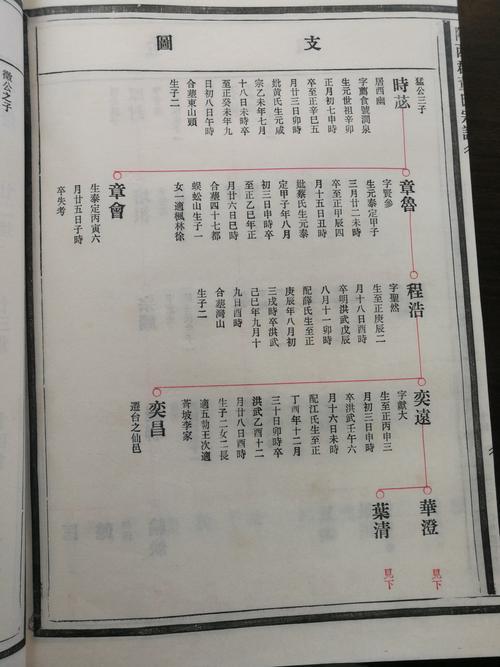 支圖
猛公三子
時苾
居西幽
字薦食號潤泉
生元世祖辛卯
正月初七申時
卒至正辛巳五
月廿三日卯時
妣黃氏生元咸
宗乙未年七月
十八日未時卒
至正癸未年九
日初八日午時
合塟東山頭
生子二
章魯
字賢參
生元泰定甲子
三月廿二未時
卒至正甲辰四
月十五日丑時
妣蔡氏生元泰
定甲子年八月
初三日申時卒
至正乙巳年正
月廿六日巳時
合塟四十七都
蜈蚣山生子一
女一適楓林徐
章會
生泰定丙寅六
月廿五日子時
卒失考
程浩
字聖然
生至正庚辰二
月十八日酉時
卒明洪武戊辰
八月十一卯時
配薛氏生至正
庚辰年八月初
三戌時卒洪武
己巳年九月十
九日酉時
合塟灣山
生子二
奕遠
字獻大
生至正丙申三
月初三日申時
卒洪武壬午六
月十六日未時
配江氏生至正
丁酉年十二月
三十日卯時卒
洪武乙酉十二
月廿八日酉時
生子二女二長
適五勒王次適
莟坡李家
奕昌
遷台之仙邑
華澄
見下
葉清
見下
徵公之子